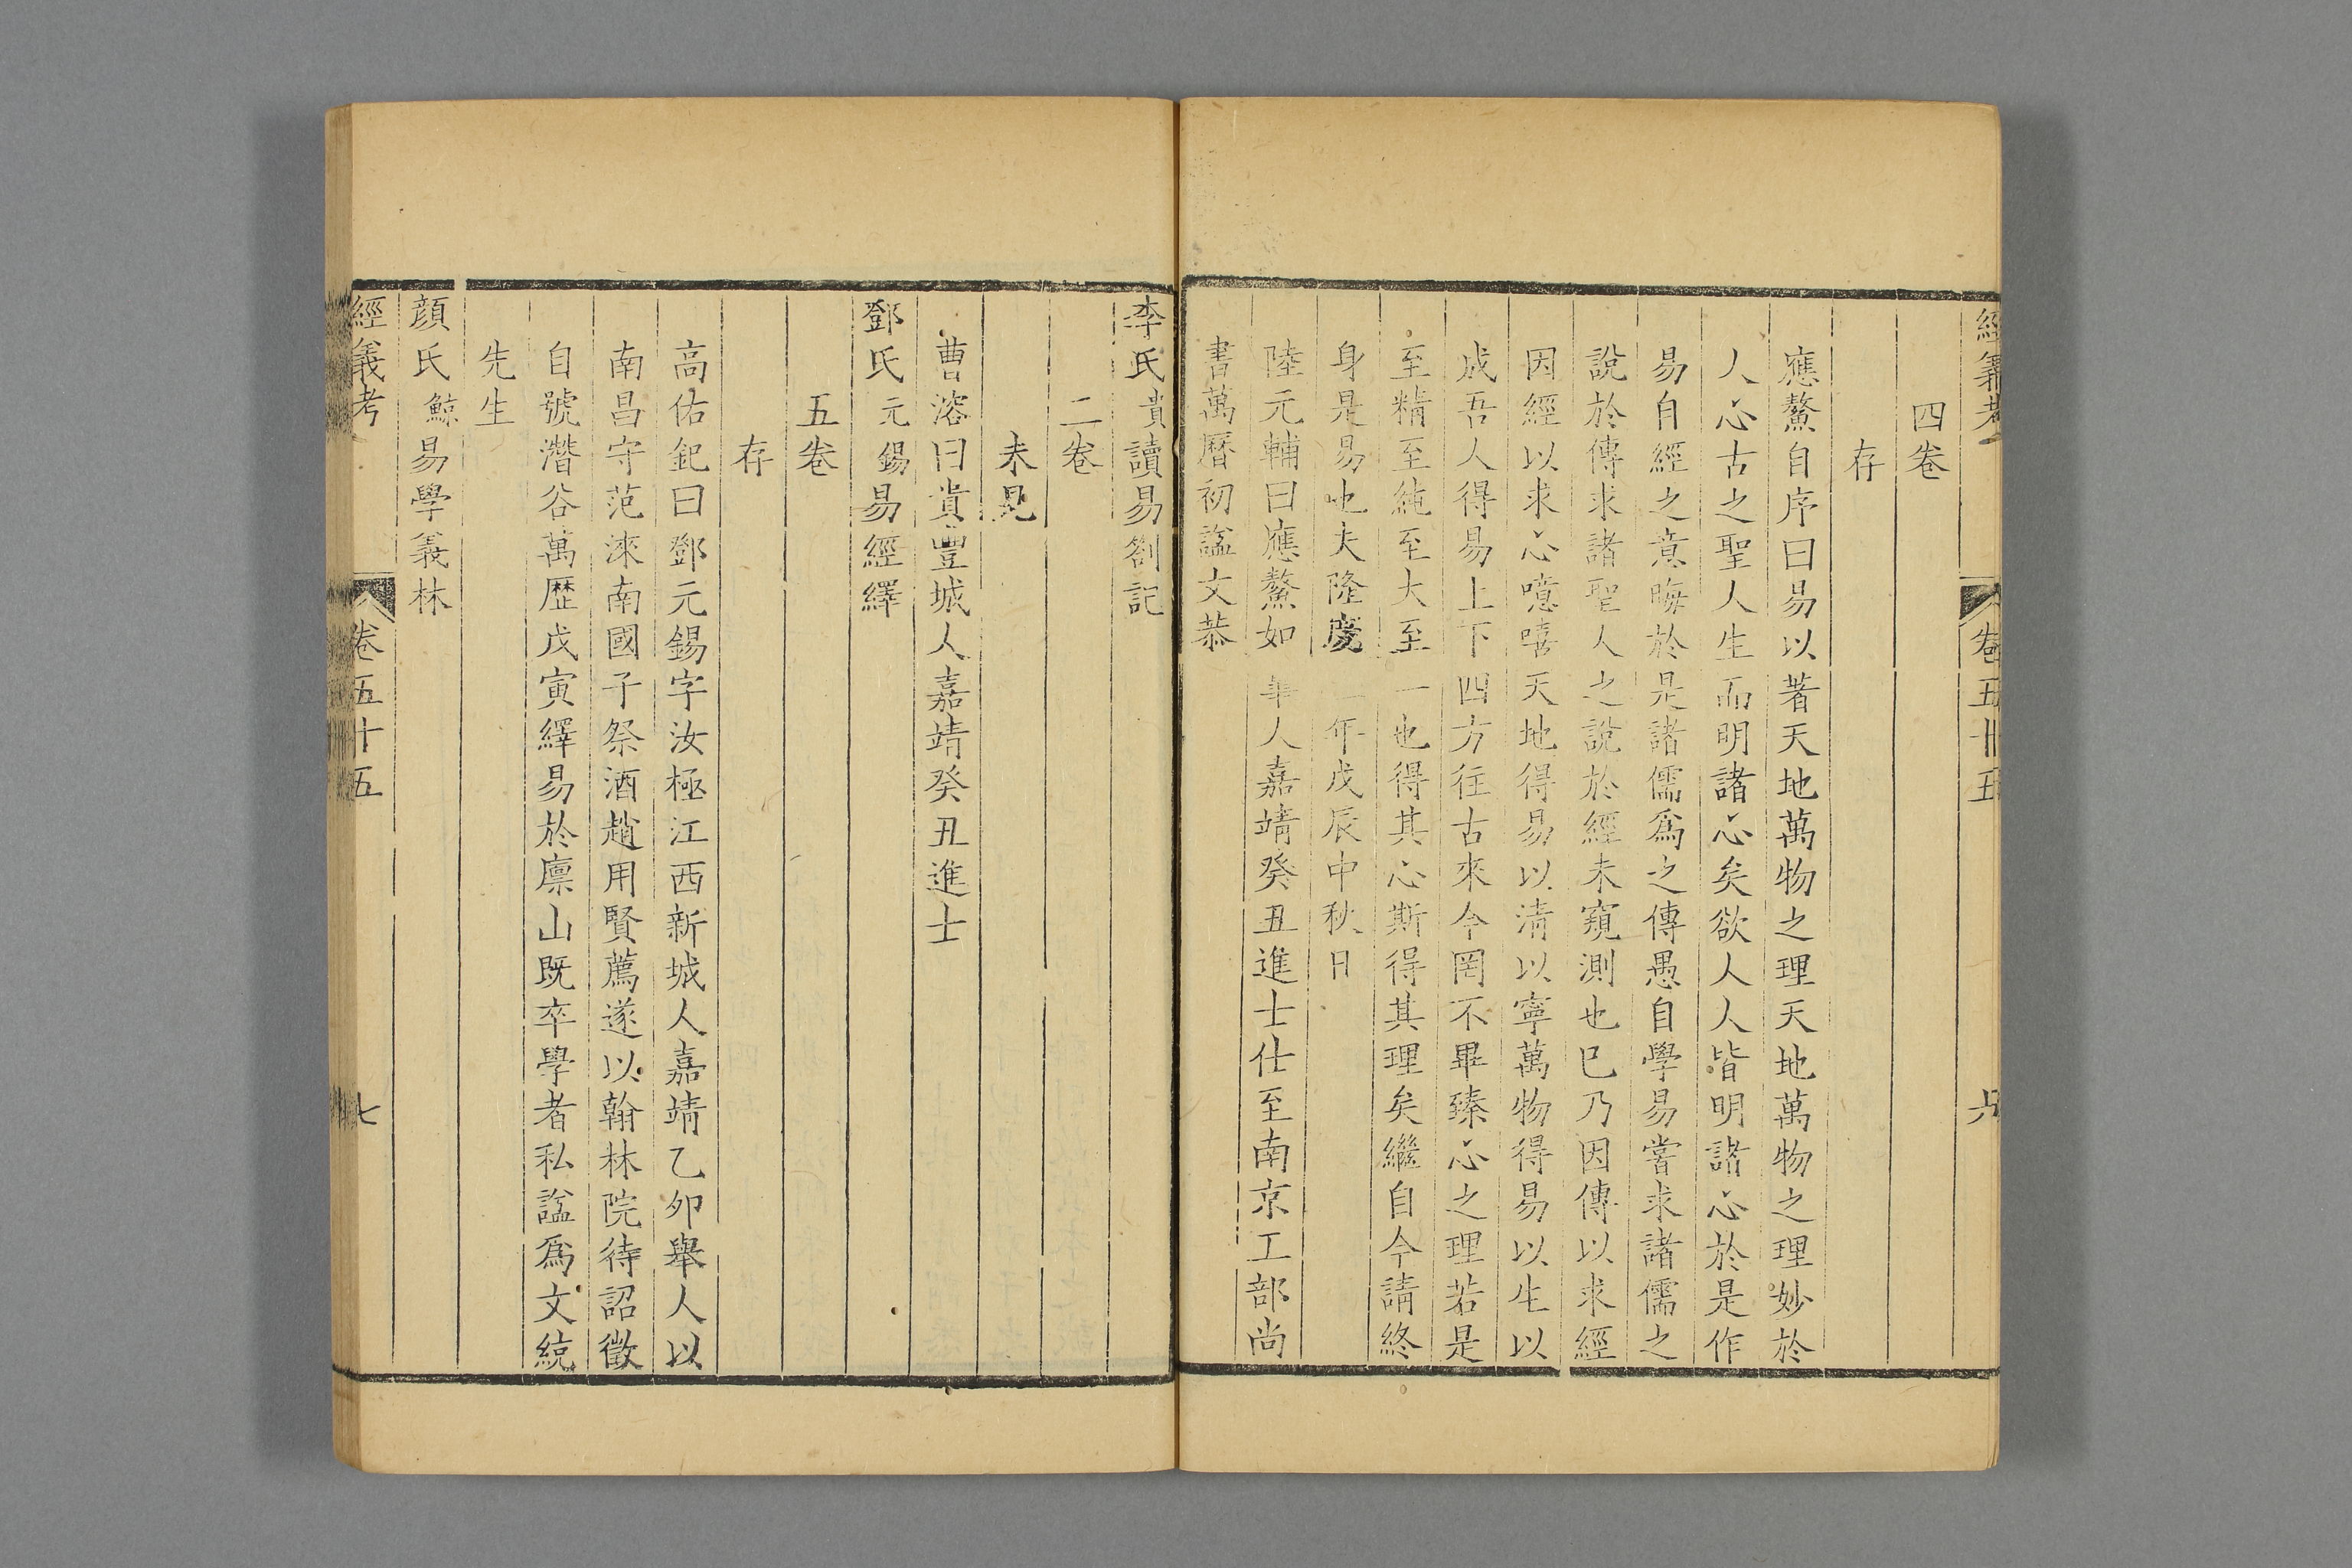 經義考 卷五十五 六
四卷
存
應鰲自序曰易以著天地萬物之理天地萬物之理妙於
人心古之聖人生而明諸心矣欲人人皆明諸心於是作
易自經之意晦於是諸儒爲之傳愚自學易嘗求諸儒之
說於傳求諸聖人之說於經未窺測也已乃因傳以求經
因經以求心噫嘻天地得易以淸以寧萬物得易以生以
成吾人得易上下四方往古來今罔不畢臻心之理若是
至精至純至大至一也得其心斯得其理矣繼自今請終
身是易也夫隆慶二年戊辰中秋日
陸元輔曰應鰲如皋人嘉靖癸丑進士仕至南京工部尚
書萬曆初諡文恭
李氏貴讀易劄記
二卷
未見
曹溶曰貴豐城人嘉靖癸丑進士
鄧氏元錫易經繹
五卷
存
高佑釲曰鄧元錫字汝極江西新城人嘉靖乙卯舉人以
南昌守范淶南國子祭酒趙用賢薦遂以翰林院待詔徵
自號潛谷萬歷戊寅繹易於廪山既卒學者私諡爲文統
先生
顔氏鯨易學義林
經義考 卷五十五 七